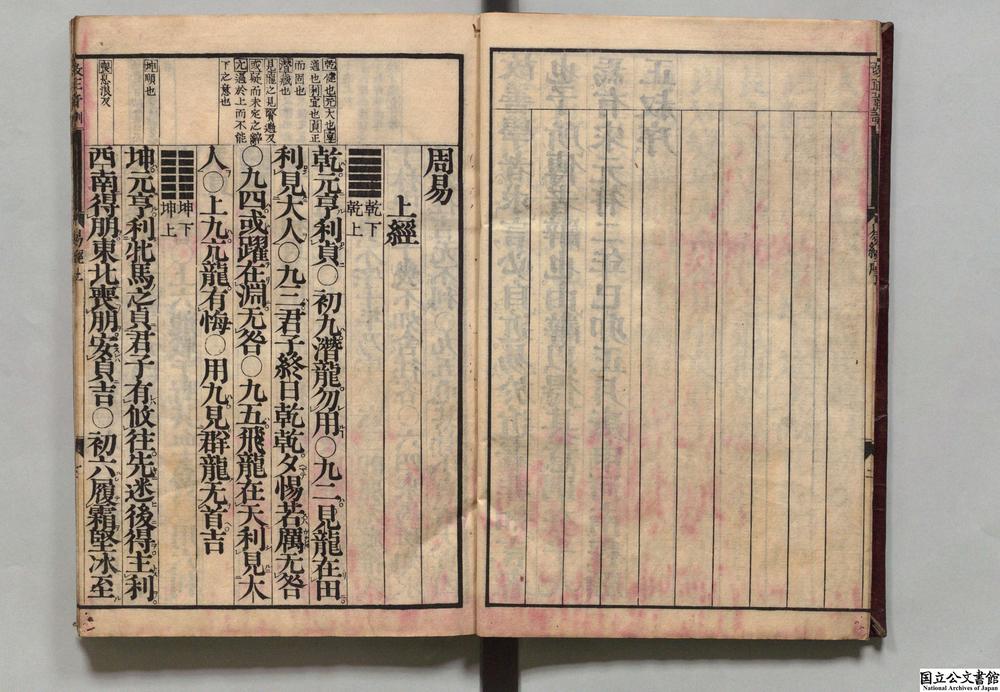 周易
上經
䷀
乾下
乾上
乾元亨利貞〇初九潛龍勿用〇九二見龍在田
利見大人〇九三君子終日乾乾夕惕若厲无咎
〇九四或躍在淵无咎〇九五飛龍在天利見大
人〇上九亢龍有悔〇用九見群龍无首吉
䷁
坤下
坤上
坤元亨利牝馬之貞君子有攸往先迷後得主利
西南得朋東北喪朋安貞吉〇初六履霜堅冰至
乾健也元大也亨
通也利宜也貞正
而固也
潛藏也
見龍之見賢遍反
或疑而未定之辭
亢過於上而不能
下之意也
坤順也
喪息浪反
国立公文書館
National Archives of Japan